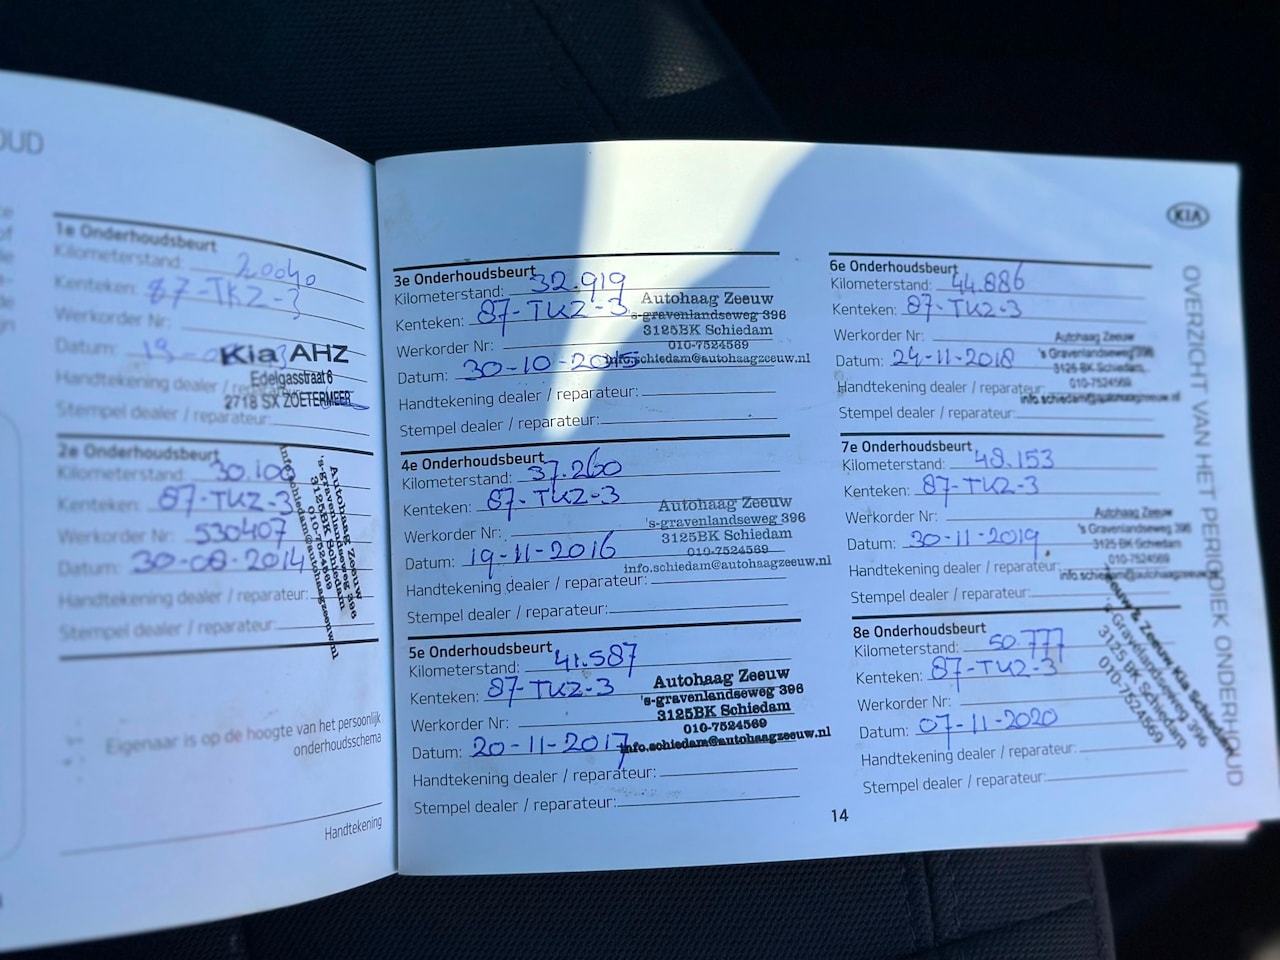 OUD
1e Onderhoudsbeurt
Kilometerstand: 20040
Kenteken: 87-TKZ-3
Werkorder Nr:
Datum: 19-
Kia AHZ
Edelgasstraat 6
2718 SX ZOETERMEER
Handtekening dealer /
Stempel dealer / reparateur:
2e Onderhoudsbeurt
Kilometerstand: 30.100
Kenteken: 87-TKZ-3
Werkorder Nr: 530407
Datum: 30-08-2014
Handtekening dealer / reparateur:
Stempel dealer / reparateur:
Autohaag Zeeuw
's-gravenlandseweg 396
3125BK Schiedam
010-7524569
info.schiedam@autohaagzeeuw.nl
Eigenaar is op de hoogte van het persoonlijk
onderhoudsschema
Handtekening
3e Onderhoudsbeurt
Kilometerstand: 32.919
Kenteken: 87-TKZ-3
Werkorder Nr:
Datum: 30-10-2015
Handtekening dealer / reparateur:
Stempel dealer / reparateur:
Autohaag Zeeuw
's-gravenlandseweg 396
3125BK Schiedam
010-7524569
info.schiedam@autohaagzeeuw.nl
4e Onderhoudsbeurt
Kilometerstand: 37.260
Kenteken: 87-TKZ-3
Werkorder Nr:
Datum: 19-11-2016
Handtekening dealer / reparateur:
Stempel dealer / reparateur:
Autohaag Zeeuw
's-gravenlandseweg 396
3125BK Schiedam
010-7524569
info.schiedam@autohaagzeeuw.nl
5e Onderhoudsbeurt
Kilometerstand: 41.587
Kenteken: 87-TKZ-3
Werkorder Nr:
Datum: 20-11-2017
Handtekening dealer / reparateur:
Stempel dealer / reparateur:
Autohaag Zeeuw
's-gravenlandseweg 396
3125BK Schiedam
010-7524569
info.schiedam@autohaagzeeuw.nl
14
KIA
OVERZICHT VAN HET PERIODIEK ONDERHOUD
6e Onderhoudsbeurt
Kilometerstand: 44.886
Kenteken: 87-TKZ-3
Werkorder Nr:
Datum: 24-11-2018
Handtekening dealer / reparateur:
Stempel dealer / reparateur:
Autohaag Zeeuw
's Gravenlandseweg 396
3125 BK Schiedam
010-7524569
info.schiedam@autohaagzeeuw.nl
7e Onderhoudsbeurt
Kilometerstand: 48.153
Kenteken: 87-TKZ-3
Werkorder Nr:
Datum: 30-11-2019
Handtekening dealer / reparateur:
Stempel dealer / reparateur:
Autohaag Zeeuw
's Gravenlandseweg 396
3125 BK Schiedam
010-7524569
info.schiedam@autohaagzeeuw.nl
8e Onderhoudsbeurt
Kilometerstand: 50.777
Kenteken: 87-TKZ-3
Werkorder Nr:
Datum: 07-11-2020
Handtekening dealer / reparateur:
Stempel dealer / reparateur:
Zeeuw & Zeeuw Kia Schiedam
's Gravelandseweg 396
3125 BK Schiedam
010-7524569